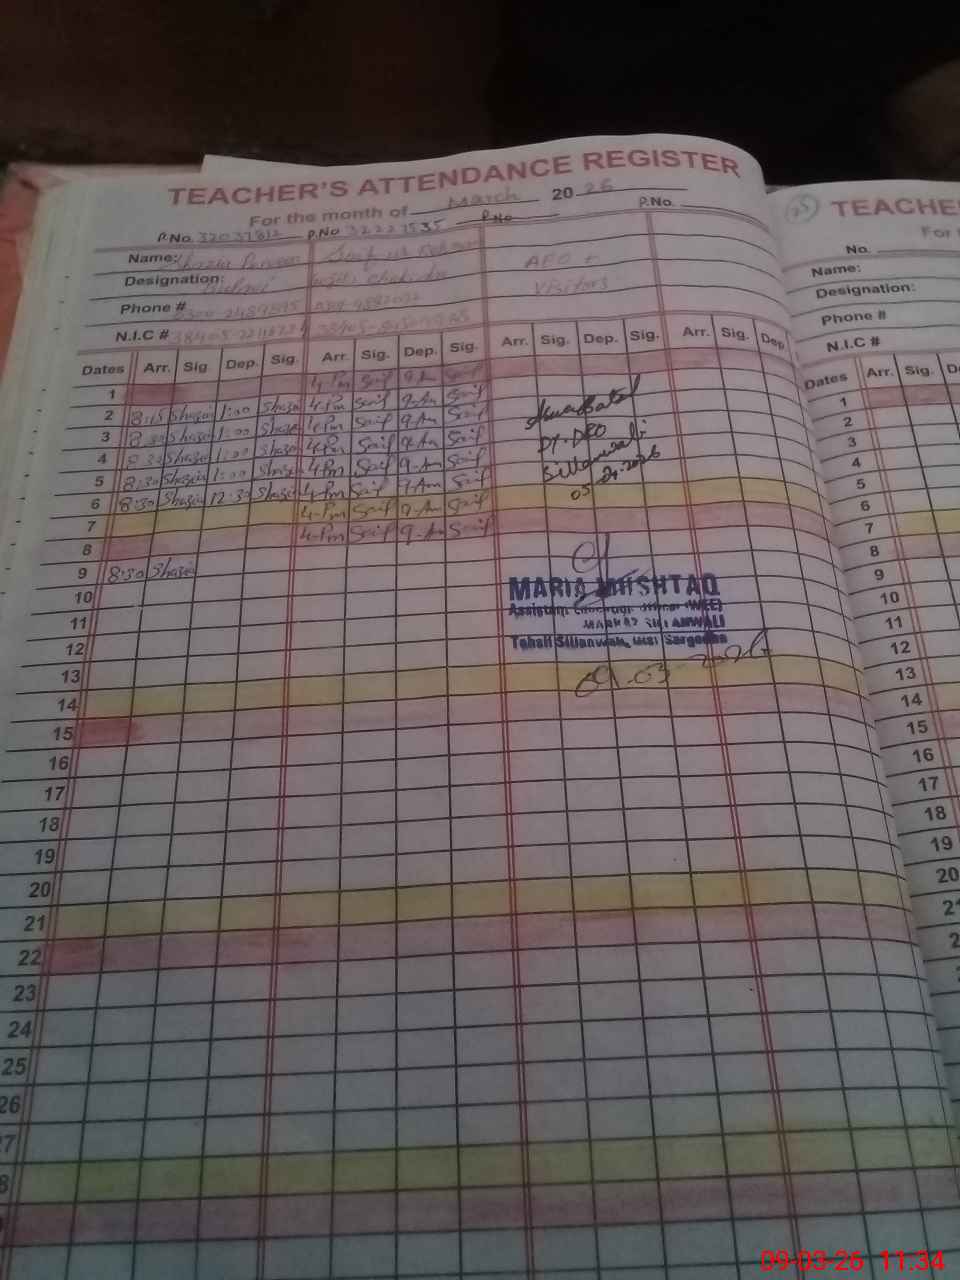 TEACHER'S ATTENDANCE REGISTER
For the month of March 2026
P.No. 32037812 P.No 32227535 P.No P.No.
Name: Shazia Parveen
Designation: AEO +
Phone # Visitors
N.I.C #
Dates Arr. Sig. Dep. Sig. Arr. Sig. Dep. Sig. Arr. Sig. Dep. Sig. Arr. Sig. Dep.
1 4-Pm Saif 9-Am Saif
2 8:15 Shazia 1:00 Shazia 4-Pm Saif 9-Am Saif
3 8:30 Shazia 1:00 Shazia 4-Pm Saif 9-Am Saif
4 8:30 Shazia 1:00 Shazia 4-Pm Saif 9-Am Saif
5 8:30 Shazia 1:00 Shazia 4-Pm Saif 9-Am Saif
6 8:30 Shazia 12:30 Shazia 4-Pm Saif 9-Am Saif
7 4-Pm Saif 9-Am Saif
8 4-Pm Saif 9-Am Saif
9 8:30 Shazia
10
11
12
13
14
15
16
17
18
19
20
21
22
23
24
25
26
27
8
Dy. DEO
Sillanwali
MARIA MUSHTAQ
Assistant Education Officer (WEE)
MARKAZ SILLANWALI
Tehsil Sillanwali, Distt Sargodha
09.03.2026
25 TEACHE
For
No.
Name:
Designation:
Phone #
N.I.C #
Dates Arr. Sig. D
1
2
3
4
5
6
7
8
9
10
11
12
13
14
15
16
17
18
19
20
09-03-26 11:34